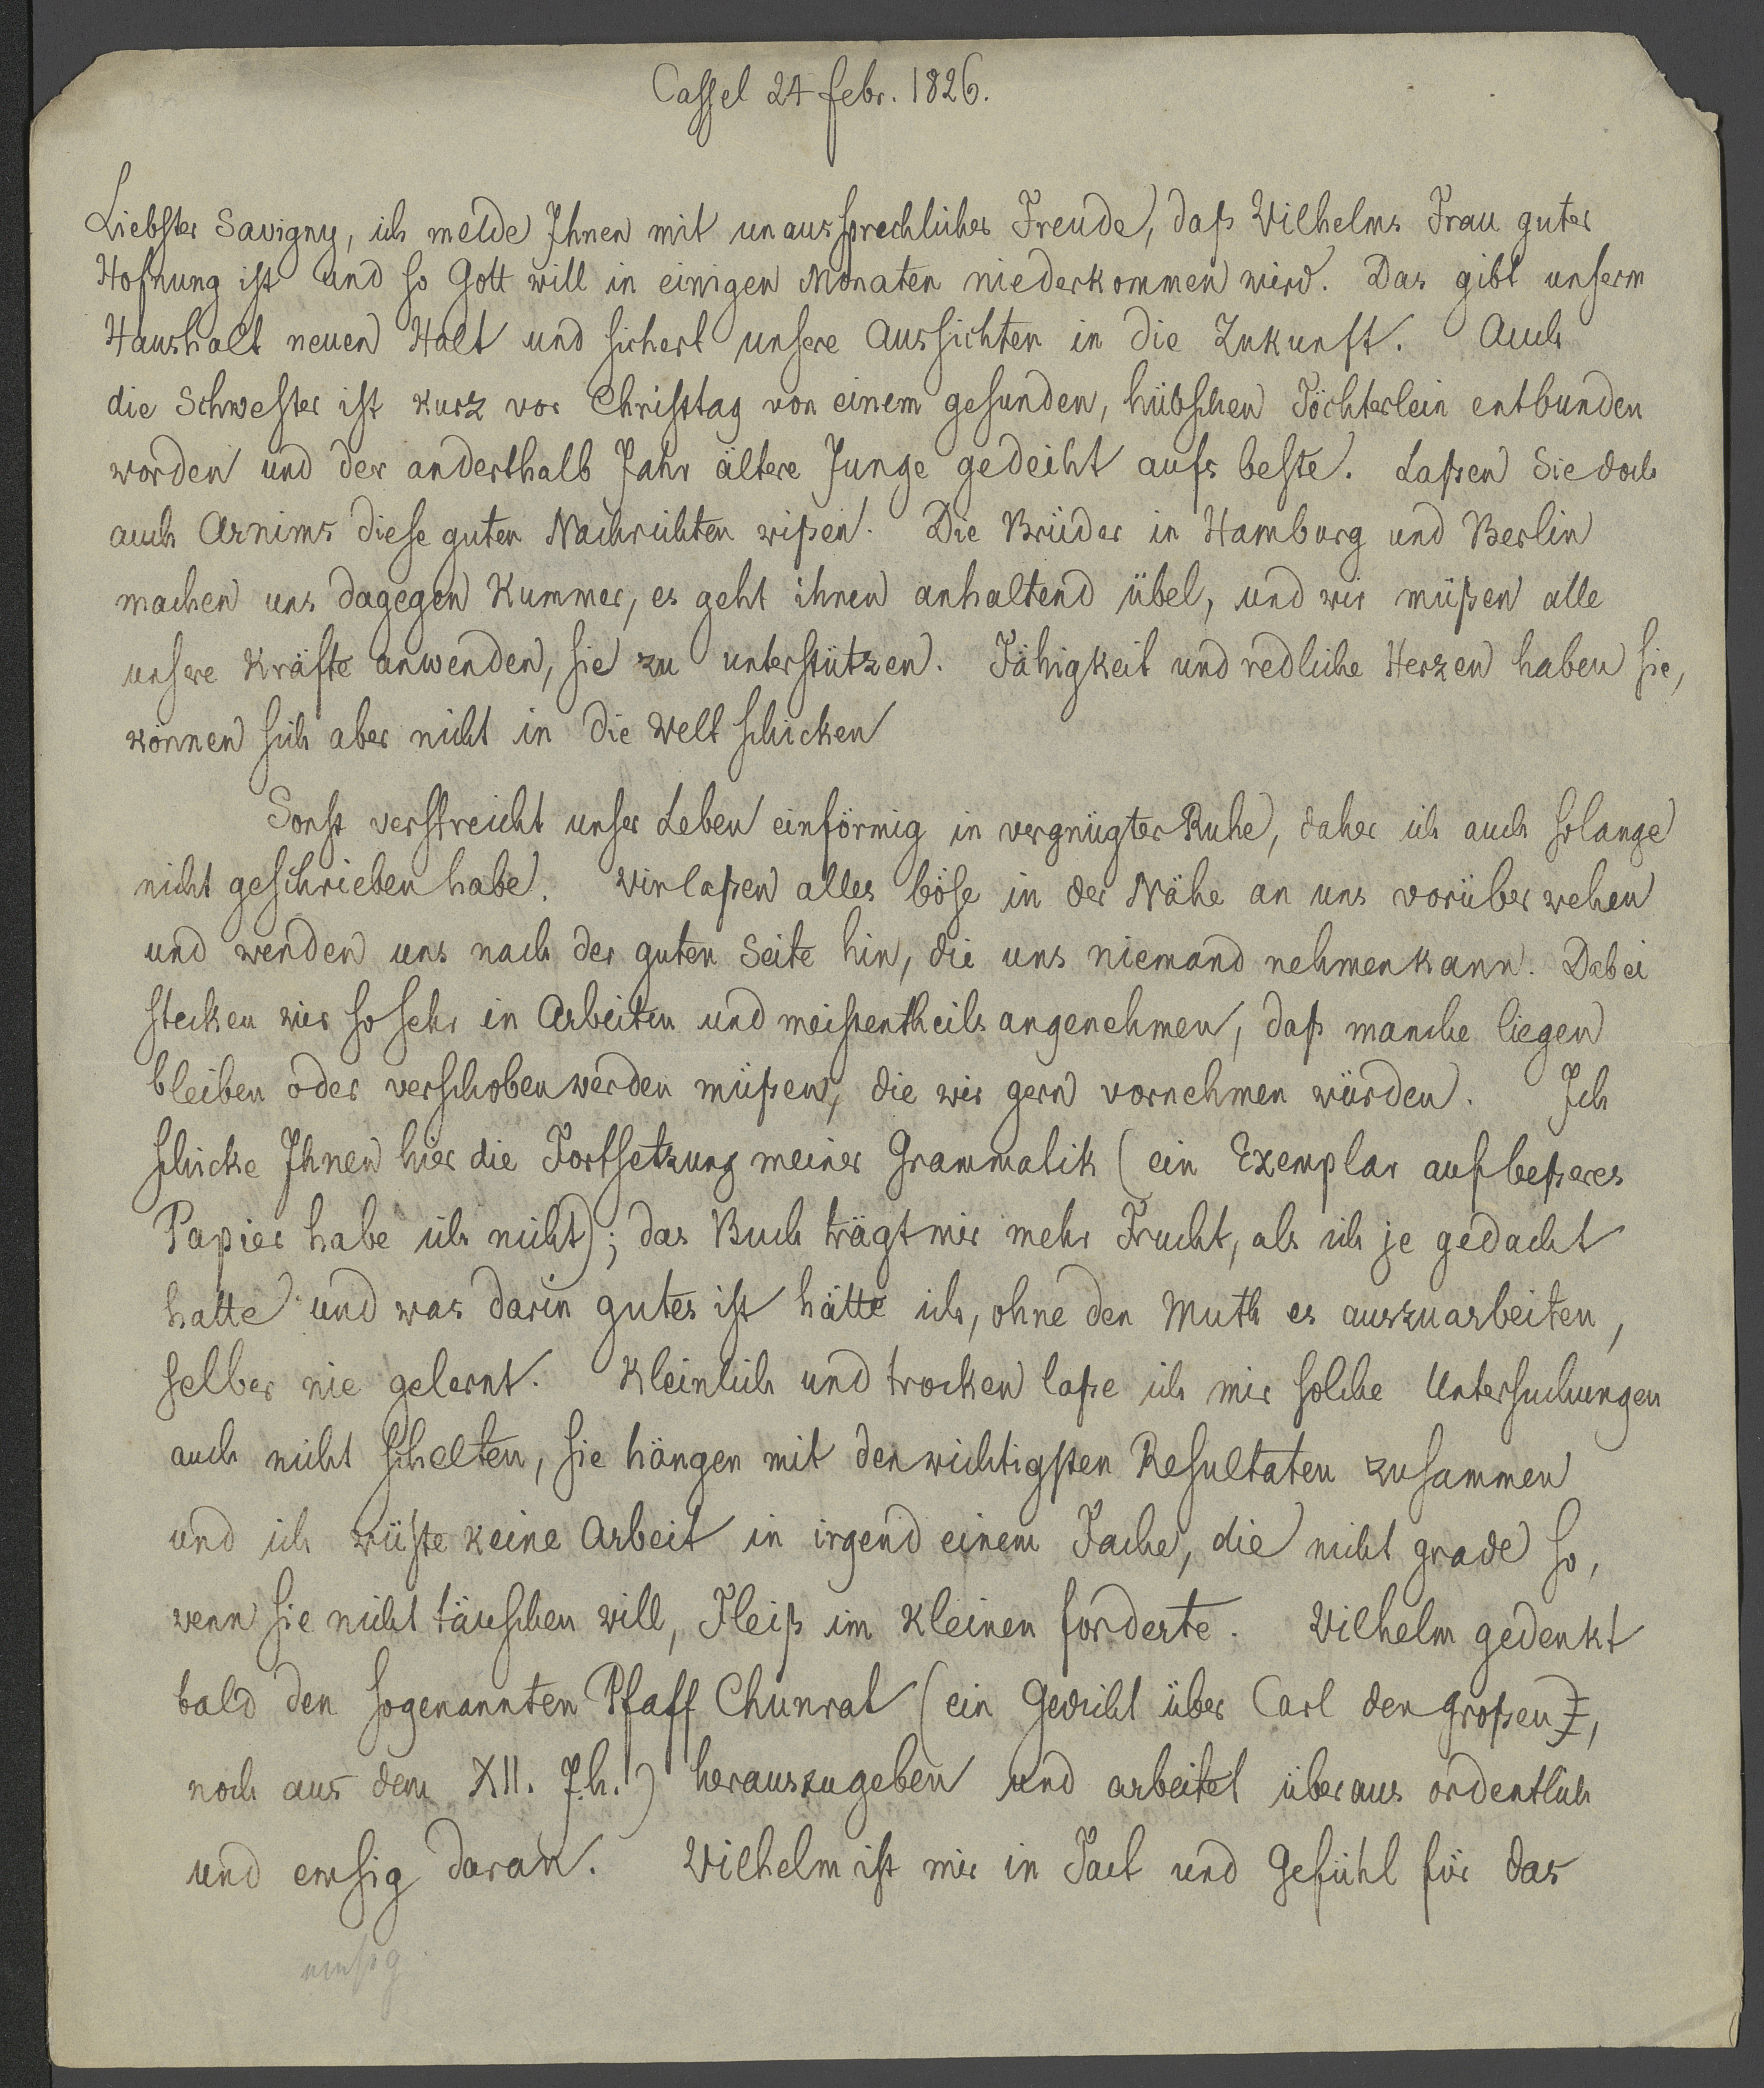 Cassel 24 febr. 1826.
Liebster Savigny, ich melde Ihnen mit unaussprechlicher Freude, daß Wilhelms Frau guter
Hofnung ist und so Gott will in einigen Monaten niederkommen wird. Das gibt unserm
Haushalt neuen Halt und sichert unsere Aussichten in die Zukunft. Auch
die Schwester ist kurz vor Christtag von einem gesunden, hübschen Töchterlein entbunden
worden und der anderthalb Jahr ältere Junge gedeiht aufs beste. Laßen Sie doch
auch Arnims diese guten Nachrichten wißen. Die Brüder in Hamburg und Berlin
machen uns dagegen Kummer, es geht ihnen anhaltend übel, und wir müßen alle
unsere Kräfte anwenden, sie zu unterstützen. Fähigkeit und redliche Herzen haben sie,
können sich aber nicht in die Welt schicken
Sonst verstreicht unser Leben einförmig in vergnügter Ruhe, daher ich auch solange
nicht geschrieben habe. Wir laßen alles böse in der Nähe an uns vorüber wehen
und wenden uns nach der guten Seite hin, die uns niemand nehmen kann. Dabei
stecken wir so sehr in Arbeiten und meistentheils angenehmen, daß manche liegen
bleiben oder verschoben werden müßen, die wir gern vornehmen würden. Ich
schicke Ihnen hier die Fortsetzung meiner Grammatik (ein Exemplar auf beßeres
Papier habe ich nicht); das Buch trägt mir mehr Frucht, als ich je gedacht
hatte und was darin gutes ist hätte ich, ohne den Muth es auszuarbeiten,
selber nie gelernt. Kleinlich und trocken laße ich mir solche Untersuchungen
auch nicht schelten, sie hängen mit den wichtigsten Resultaten zusammen
und ich wüste keine Arbeit in irgend einem Fache, die nicht grade so,
wenn sie nicht täuschen will, Fleiß im Kleinen forderte. Wilhelm gedenkt
bald den sogenannten Pfaff Chunrat (ein Gedicht über Carl den großen,
noch aus dem XII. Jh.) herauszugeben und arbeitet überaus ordentlich
und emsig daran. Wilhelm ist mir in Tact und Gefühl für das